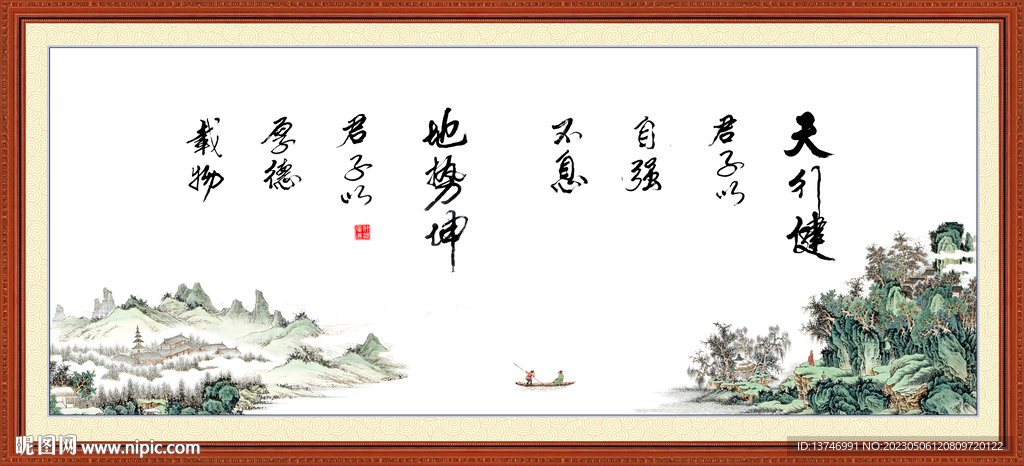 天行健
君子以
自强
不息
地势坤
君子以
厚德
载物
昵图网 www.nipic.com
ID:13746991 NO:20230506120809720122